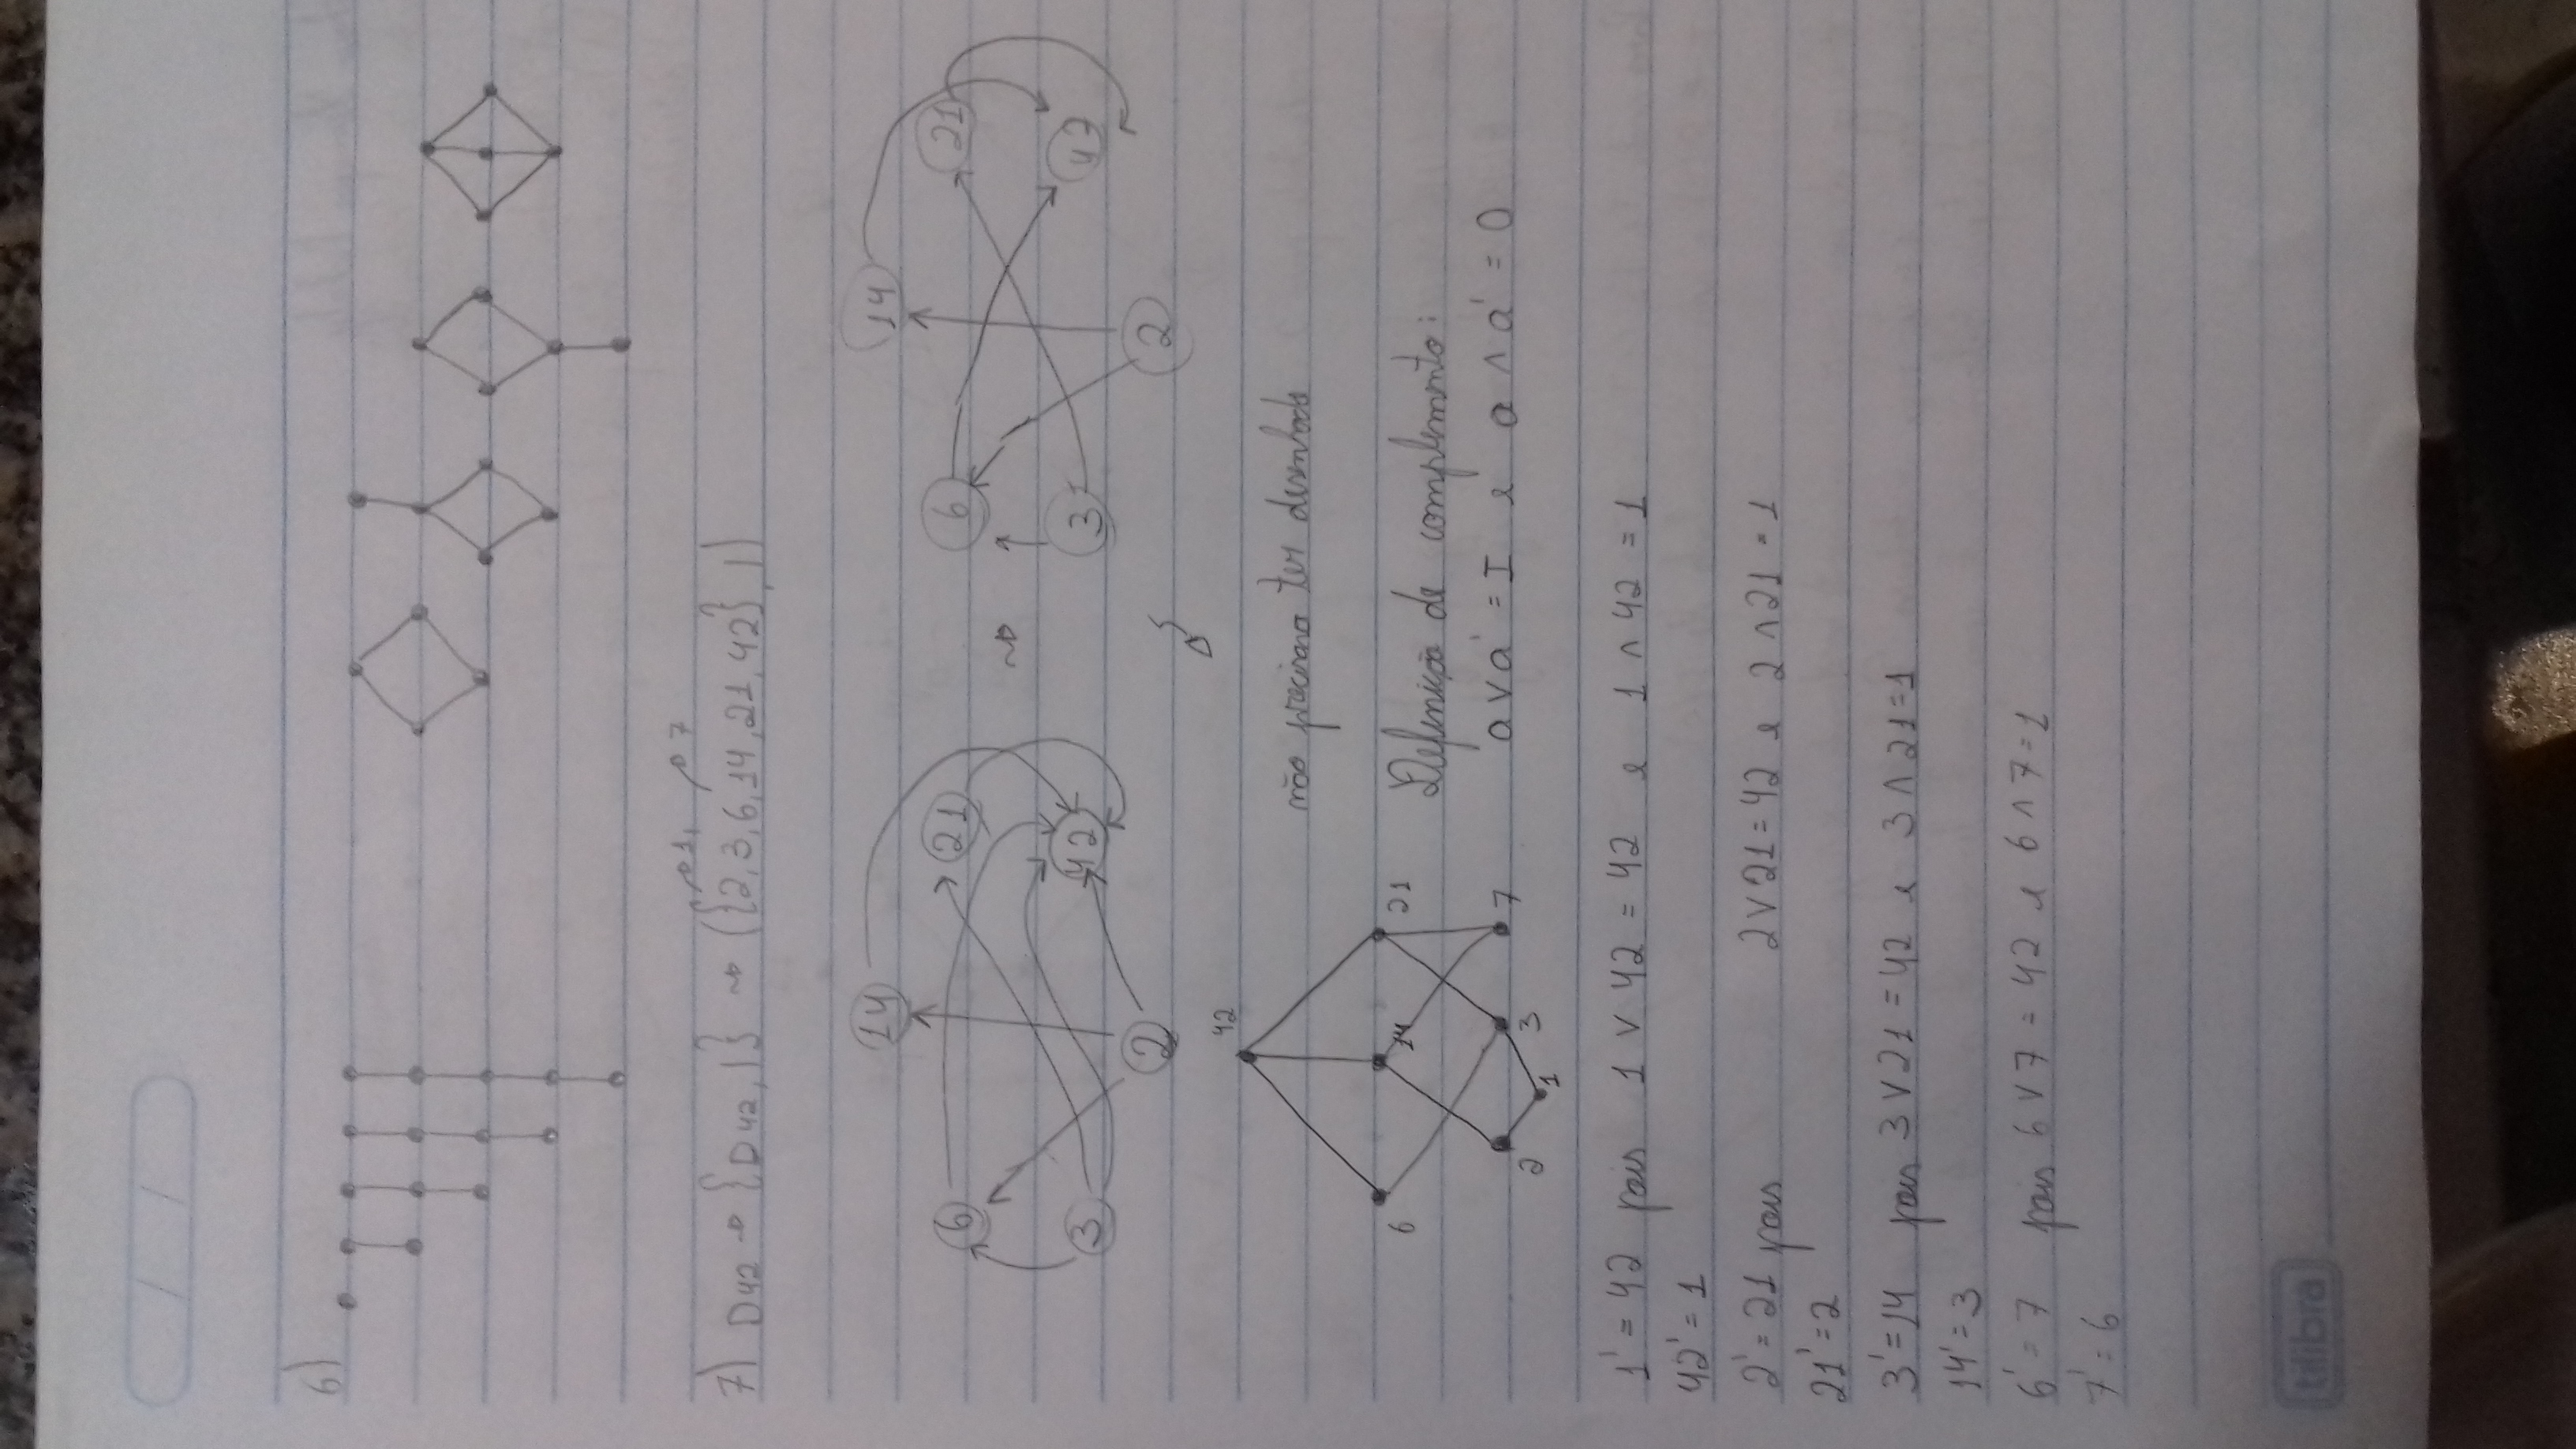 6)
1, 7
7) D42 → {D42, |} ⇝ ({2, 3, 6, 14, 21, 42}, |)
14 14
6 21 6 21
3 42 3 42
2 2
42
não precisava ter desenhado
6 14 21
Definição de complemento:
a ∨ a' = I e a ∧ a' = O
2 1 3 7
1' = 42 pois 1 ∨ 42 = 42 e 1 ∧ 42 = 1
42' = 1
2' = 21 pois 2 ∨ 21 = 42 e 2 ∧ 21 = 1
21' = 2
3' = 14 pois 3 ∨ 21 = 42 e 3 ∧ 21 = 1
14' = 3
6' = 7 pois 6 ∨ 7 = 42 e 6 ∧ 7 = 1
7' = 6
tilibra